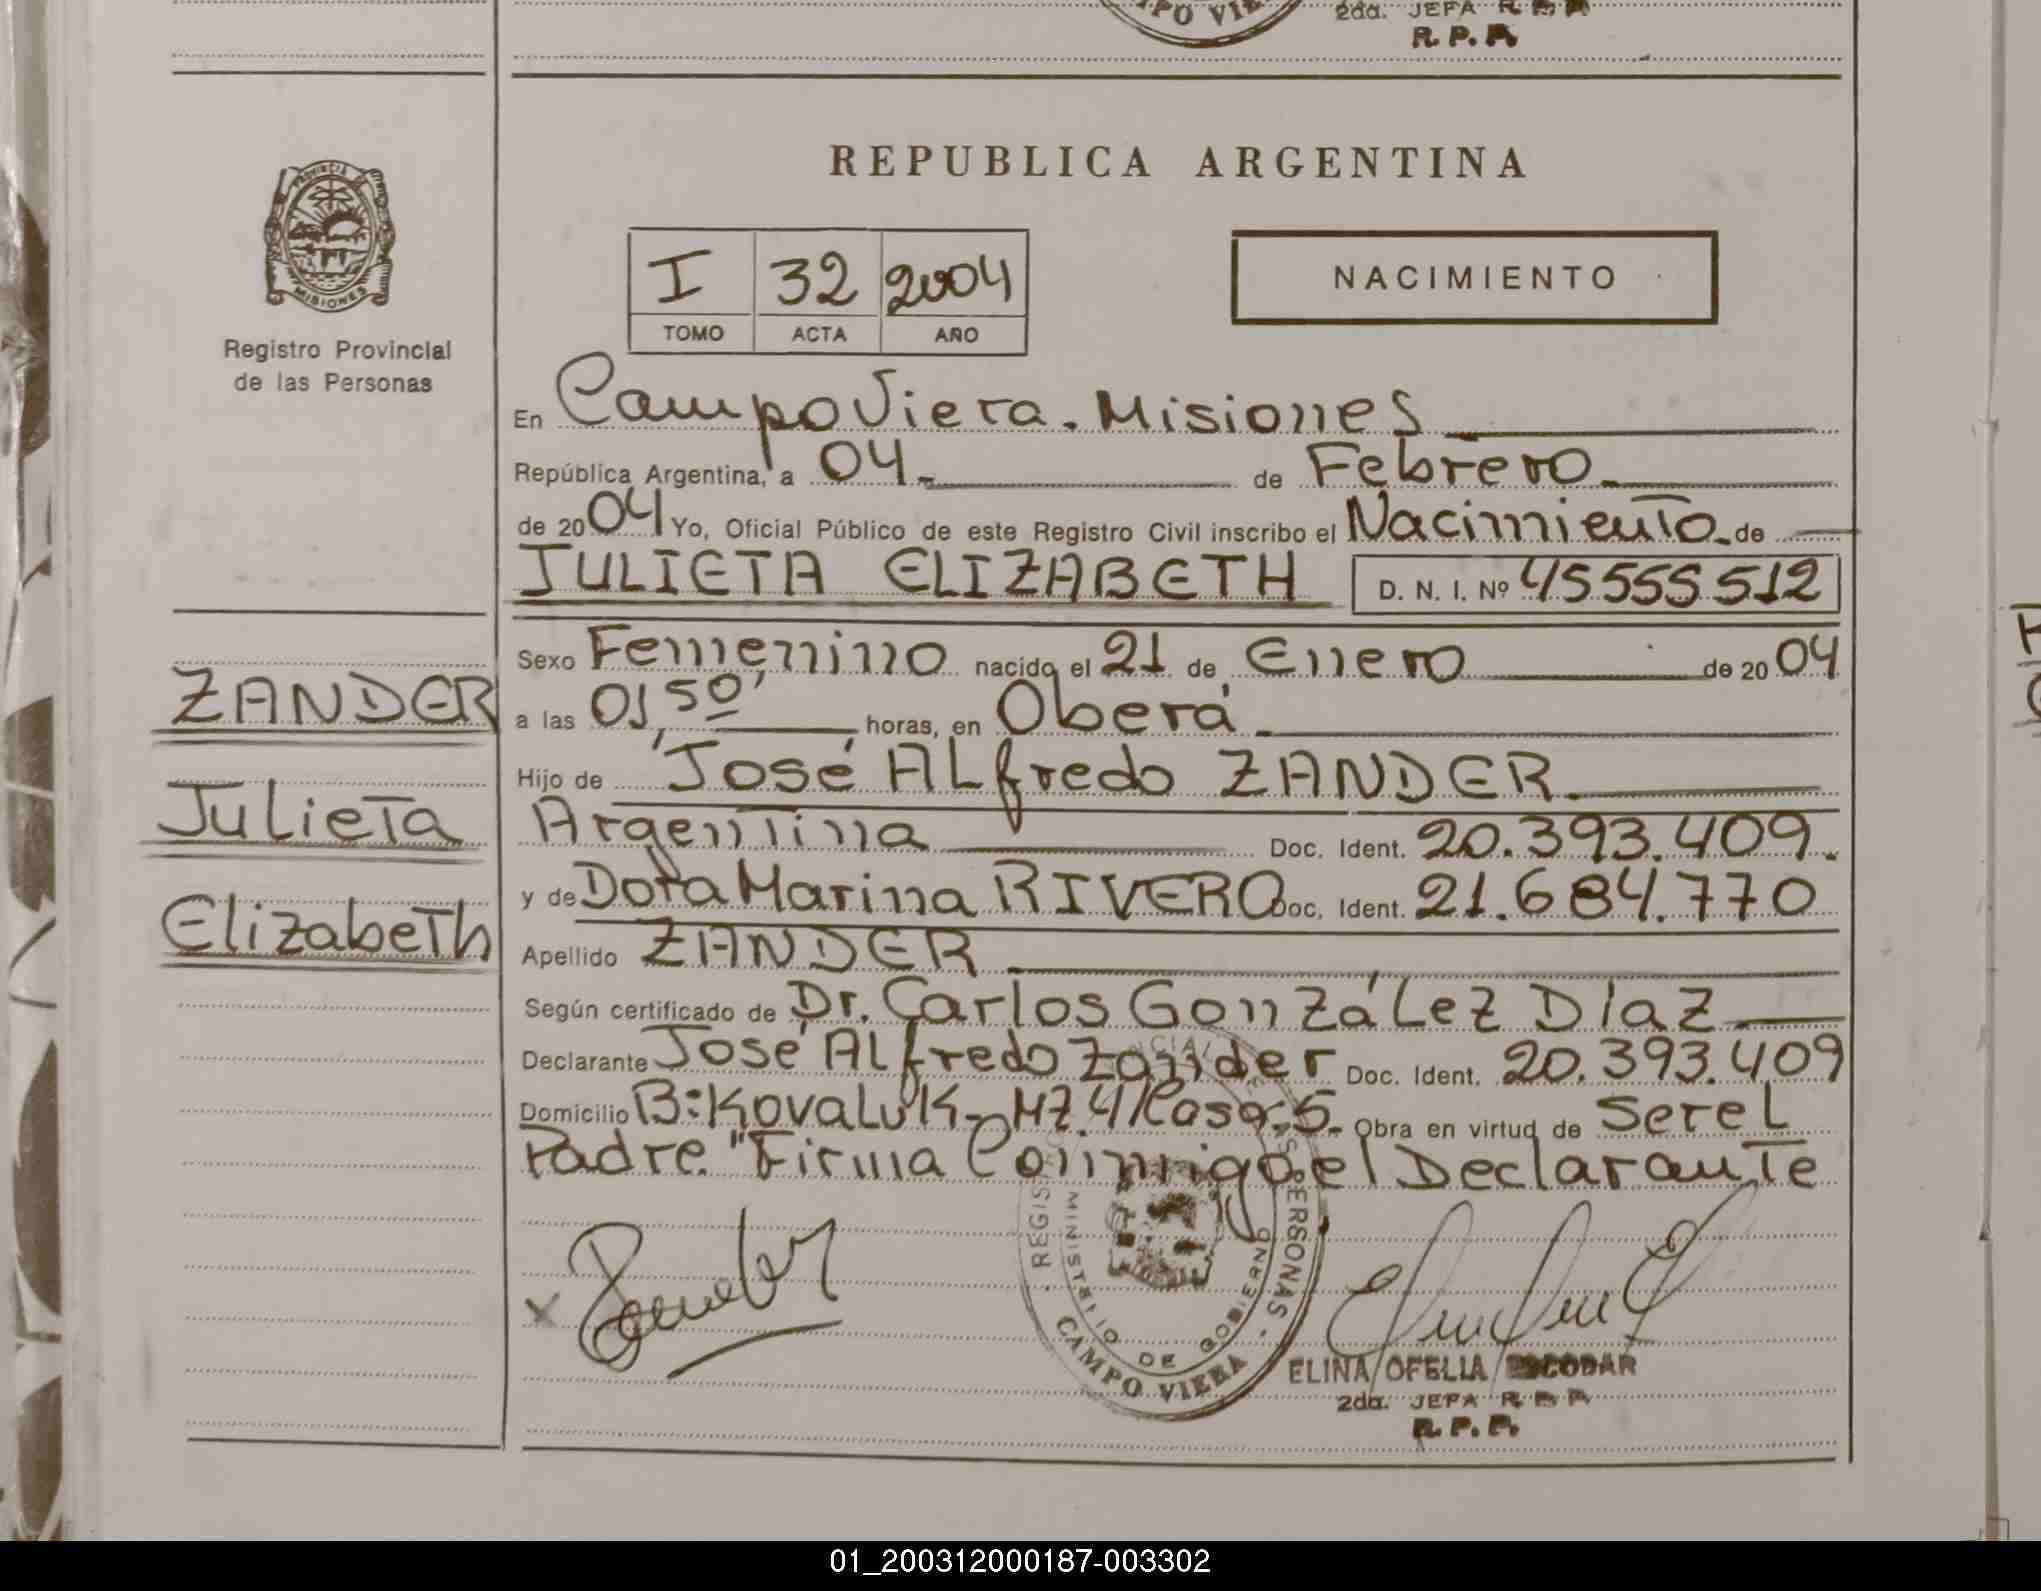 CAMPO VIE
2da. JEFA R. P. P.
R. P. P.
REPUBLICA ARGENTINA
PROVINCIA DE
MISIONES
Registro Provincial
de las Personas
I 32 2004
TOMO ACTA AÑO
NACIMIENTO
En Campo Viera. Misiones
República Argentina, a 04. de Febrero.
de 2004 Yo, Oficial Público de este Registro Civil inscribo el Nacimiento. de
JULIETA ELIZABETH D. N. I. Nº 45555512
Sexo Femenino nacido el 21 de Enero de 2004
ZANDER
a las 01,50' horas, en Oberá
Hijo de José Alfredo ZANDER.
Julieta
Argentina Doc. Ident. 20.393.409.
y de Dora Marina RIVERO Doc. Ident. 21.684.770
Elizabeth
Apellido ZANDER
Según certificado de Dr. Carlos González Díaz
Declarante José Alfredo Zander Doc. Ident. 20.393.409
Domicilio B:Kovaluk- Mz.4/Casa:5. Obra en virtud de Ser el
Padre. "Firma Conmigo el Declarante
X
REGIS CIAL S PERSONAS
MINISTERIO DE GOBIERNO
CAMPO VIERA
ELINA OFELIA ESCOBAR
2da. JEFA R. P. P.
R. P. P.
01_200312000187-003302